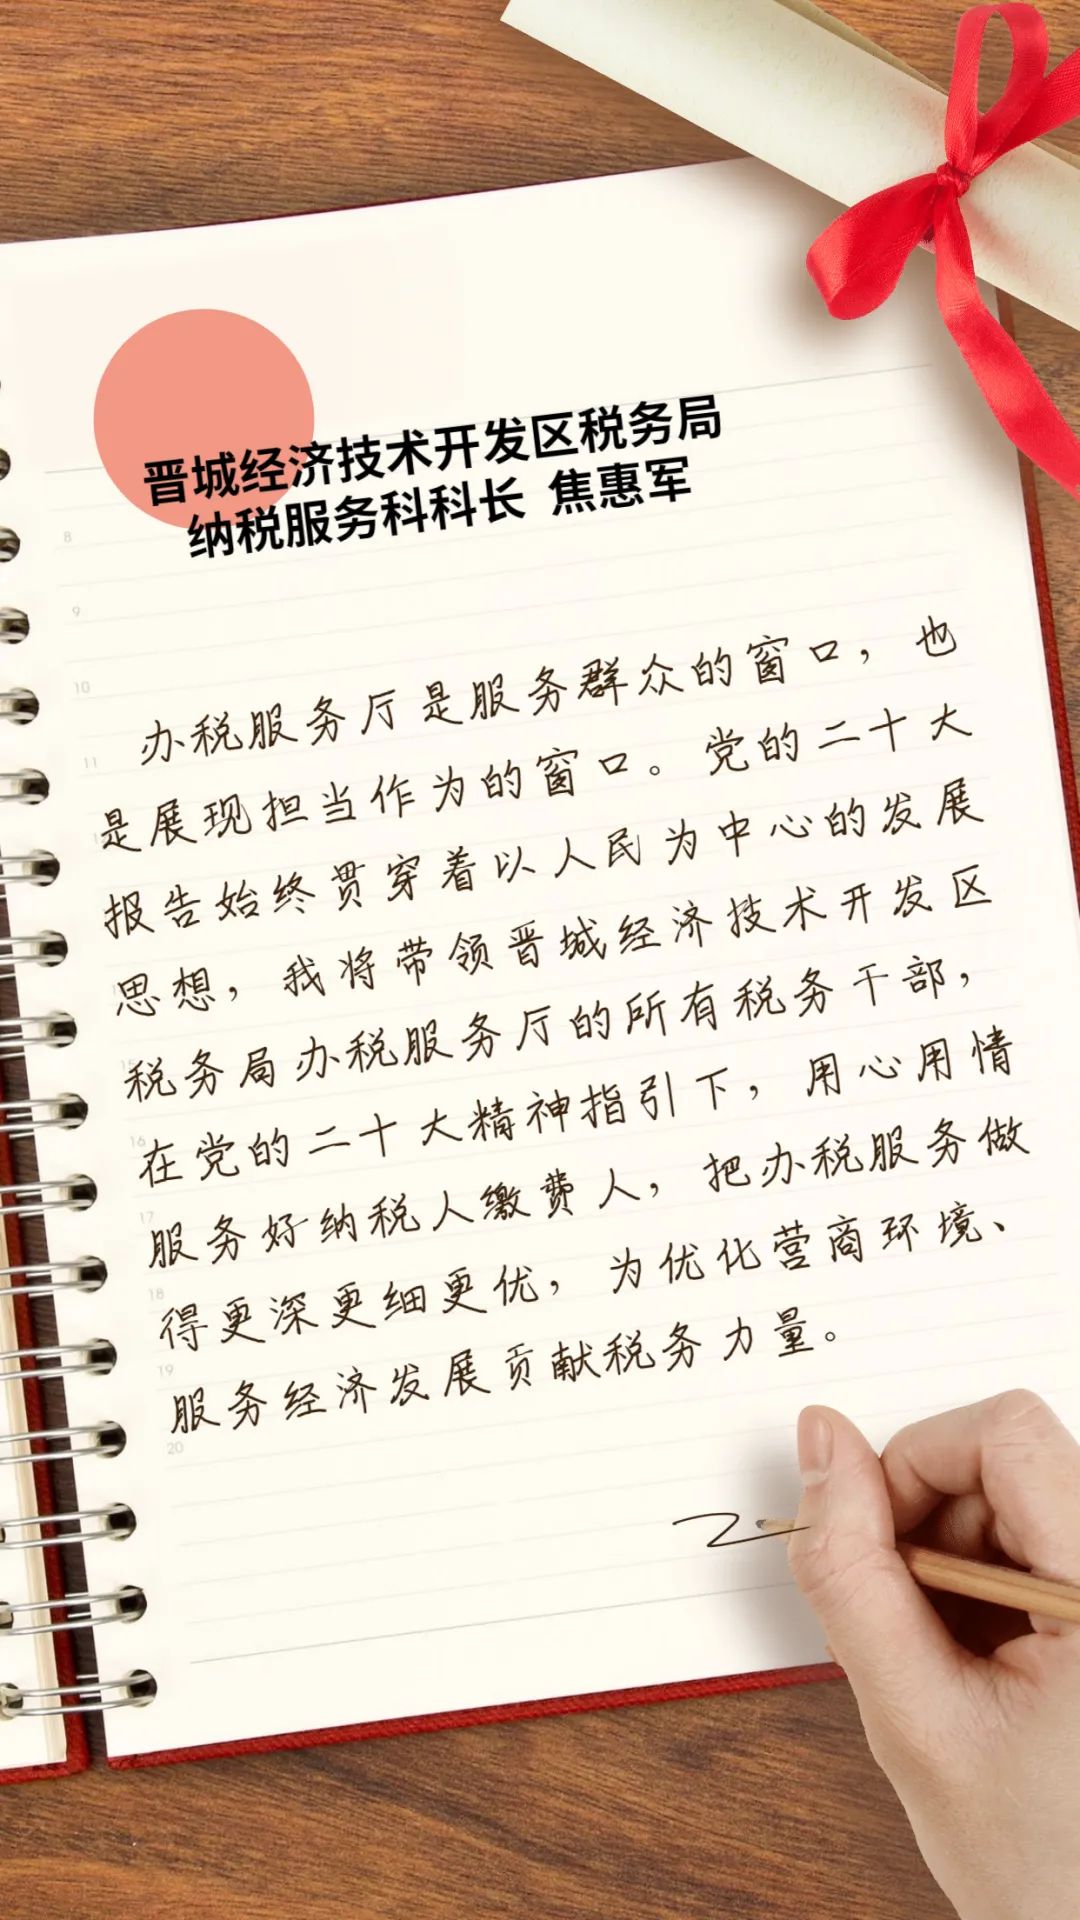 晋城经济技术开发区税务局
纳税服务科科长 焦惠军
办税服务厅是服务群众的窗口，也
是展现担当作为的窗口。党的二十大
报告始终贯穿着以人民为中心的发展
思想，我将带领晋城经济技术开发区
税务局办税服务厅的所有税务干部，
在党的二十大精神指引下，用心用情
服务好纳税人缴费人，把办税服务做
得更深更细更优，为优化营商环境、
服务经济发展贡献税务力量。
8
9
10
11
16
17
18
19
20